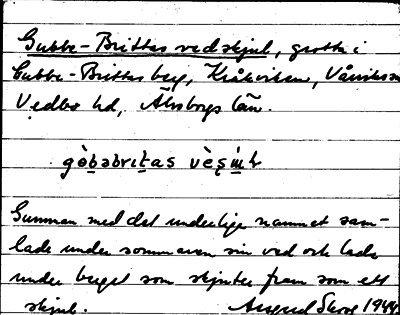 Gubbe-Brittas vedskjul, grotta i
Gubbe-Brittas berg, Kråkviken, Vårviks sn
Vedbo hd, Älvsborgs län.
gòbəbritas vèʂul
Gumman med det underliga namnet sam-
lade under sommaren sin ved och lade
under berget som skjuter fram som ett
skjul. 1944